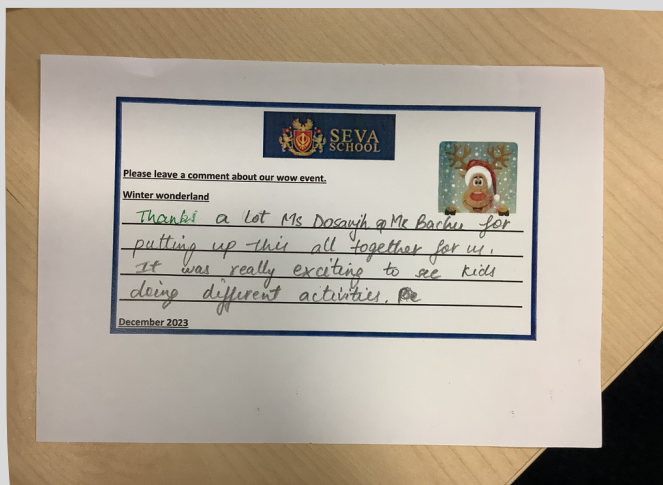 SEVA
SCHOOL
Please leave a comment about our wow event.
Winter wonderland
Thanks a lot Ms Dosanjh & Mr Bachu for
putting up this all together for us.
It was really exciting to see kids
doing different activities.
December 2023